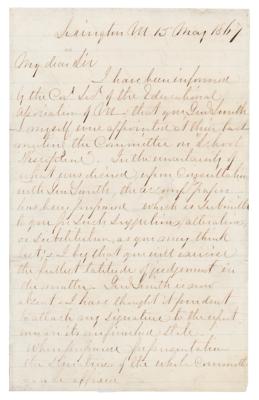 Lexington Va 15 May 1867
My dear Sir
I have been informed
by the Cor. Sec. of the Educational
Association of Va - that you, Genl Smith
& myself were appointed at their last
meeting the Committee on "School
Discipline". In the uncertainty of
what was desired, upon Consultation
with Genl Smith, the accompg paper
has been prepared which is submitted
to you for such suggestions, alterations
or substitution, as you may think
best; & I beg that you will exercise
the fullest latitude of judgement in
the matter. Genl Smith is now
absent & I have thought it prudent
to attach my signature to the report
even in its unfinished state.
When prepared for presentation
the signatures of the whole Committee
can be affixed